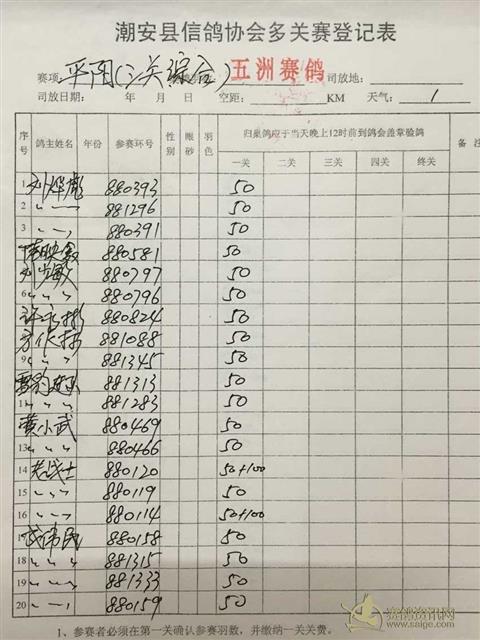 潮安县信鸽协会多关赛登记表
赛项 平阳(二关综合) 五洲赛鸽 司放地:
司放日期: 年 月 日 空距: KM 天气:
序号 鸽主姓名 年份 参赛环号 性别 眼砂 羽色 归巢鸽应于当天晚上12时前到鸽会盖章验鸽 备注
一关 二关 三关 四关 终关
1 880393 50
2 〃 881296 50
3 〃 880391 50
880581 50
880797 50
6 〃 〃 〃 880796 50
880824 50
881088 50
9 〃 〃 〃 881345 50
881313 50
11 〃 〃 〃 881283 50
黄小武 880469 50
13 〃 〃 〃 880466 50
14 老战士 880120 50+100
15 〃 〃 〃 880119 50
16 〃 〃 〃 880114 50+100
17 880158 50
18 〃 〃 〃 881315 50
19 〃 〃 〃 881333 50
20 〃 〃 〃 880159 50
1、参赛者必须在第一关确认参赛羽数，并缴纳一关关费。
赛鸽资讯网
www.saige.com